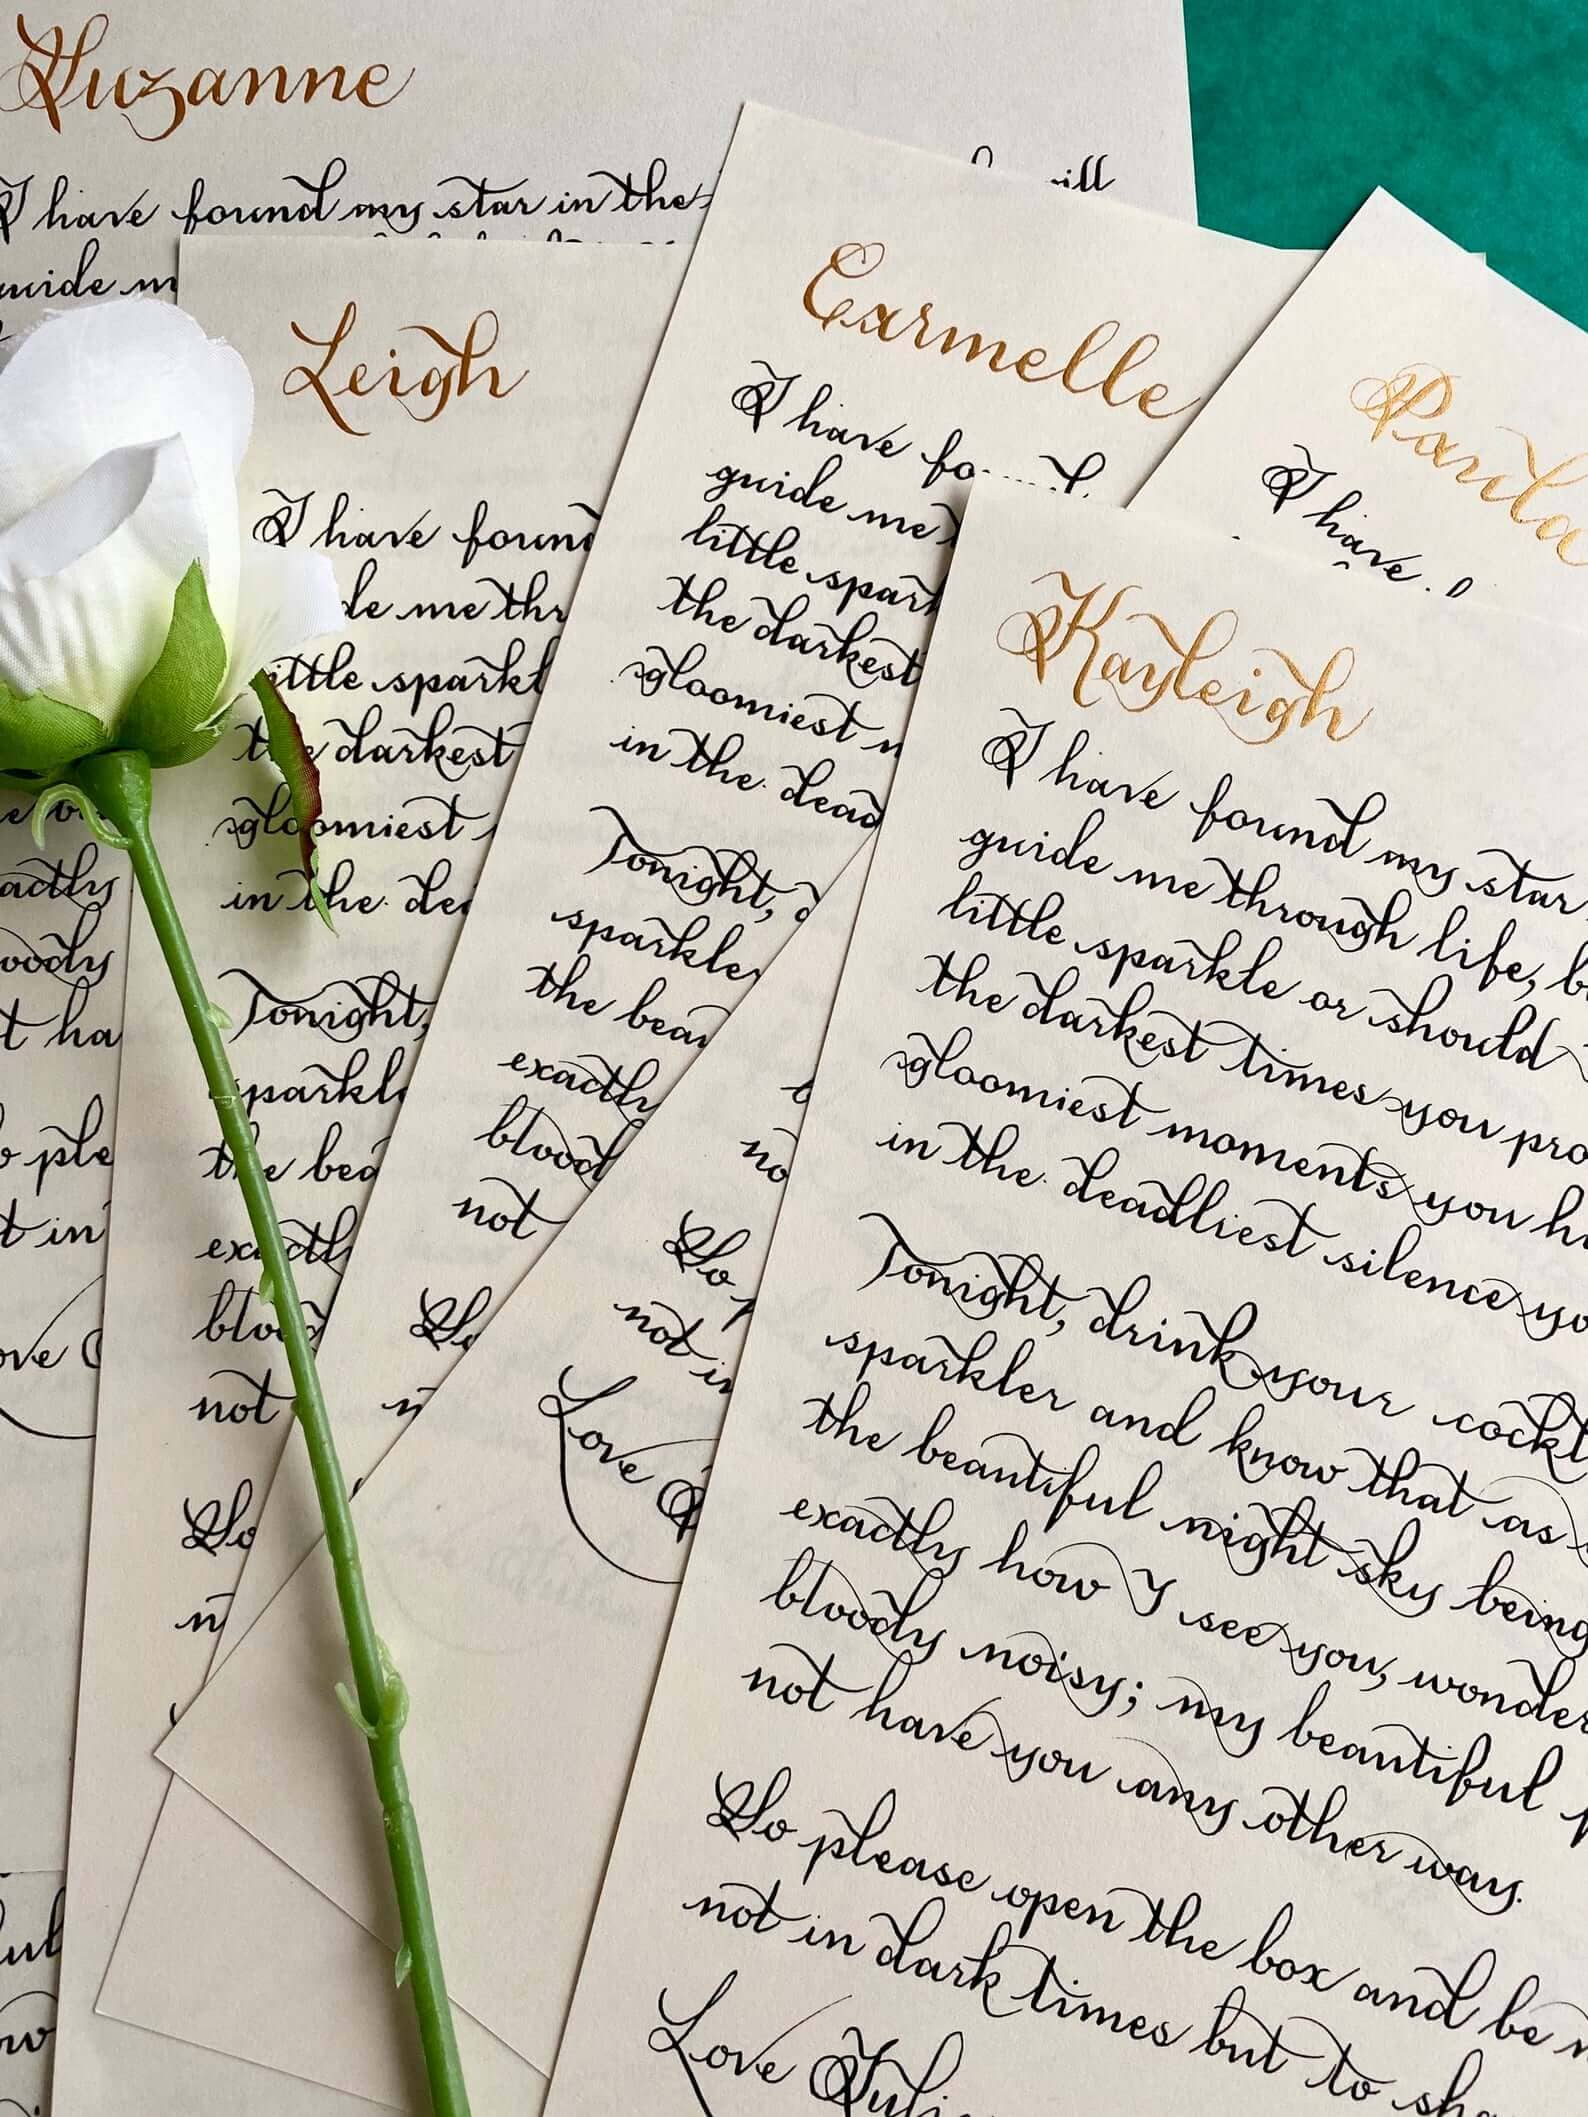 Suzanne
I have found my star in the
guide
ill
Leigh
I have found
me thr
little sparkl
the darkest
gloomiest
in the
Tonight,
sparkl
the bea
exactl
blood
not
So
Carmelle
I have fo
guide me
little spark
the darkest
gloomiest
in the dead
Tonight, d
sparkler
the beau
exactly
blood
not
So
Paula
I have
no
So
not in
Love
Kayleigh
I have found my star
guide me through life, b
little sparkle or should I
the darkest times you pro
gloomiest moments you h
in the deadliest silence yo
Tonight, drink your cockt
sparkler and know that as
the beautiful night sky being
exactly how I see you, wonder
bloody noisy; my beautiful
not have you any other way.
So please open the box and be
not in dark times but to sh
Love Juli
actly
oody
t ha
o ple
t in
ove